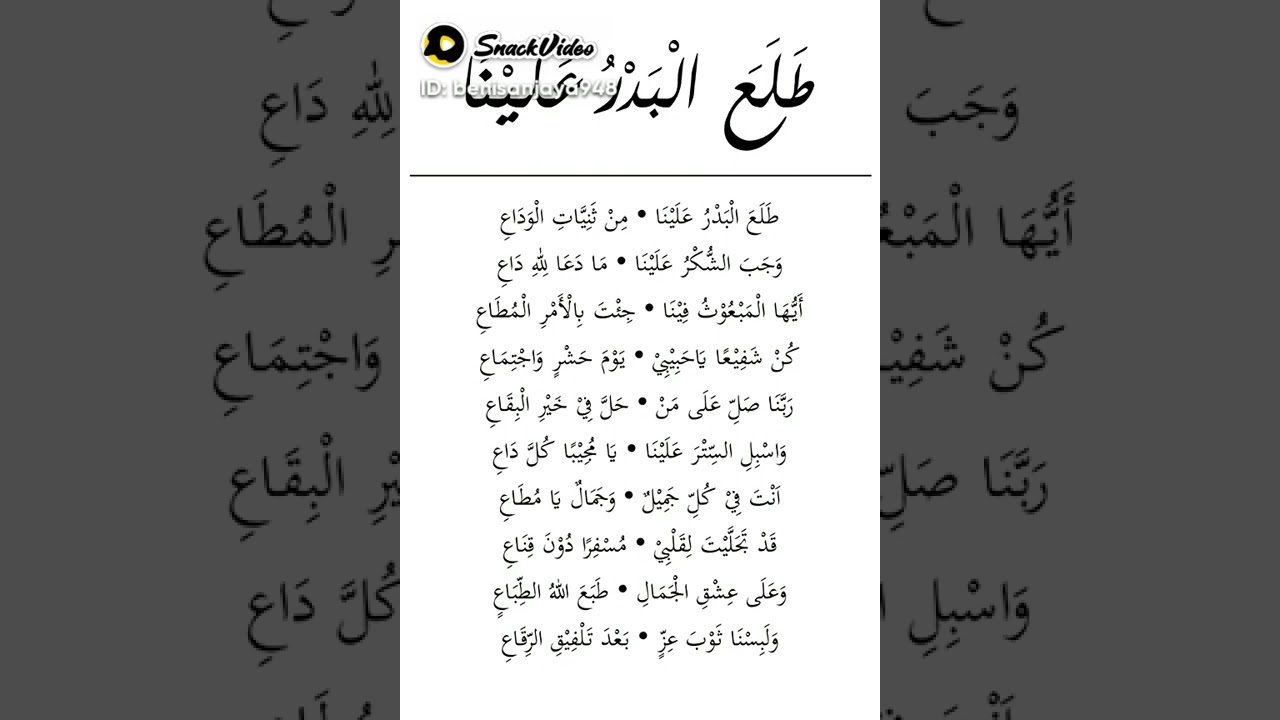 SnackVideo
ID: benisanjaya948
طَلَعَ الْبَدْرُ عَلَيْنَا
طَلَعَ الْبَدْرُ عَلَيْنَا • مِنْ ثَنِيَّاتِ الْوَدَاعِ
وَجَبَ الشُّكْرُ عَلَيْنَا • مَا دَعَا لِلّٰهِ دَاعِ
أَيُّهَا الْمَبْعُوْثُ فِيْنَا • جِئْتَ بِالْأَمْرِ الْمُطَاعِ
كُنْ شَفِيْعًا يَاحَبِيْبِيْ • يَوْمَ حَشْرٍ وَاجْتِمَاعِ
رَبَّنَا صَلِّ عَلَى مَنْ • حَلَّ فِيْ خَيْرِ الْبِقَاعِ
وَاسْبِلِ السِّتْرَ عَلَيْنَا • يَا مُجِيْبًا كُلَّ دَاعِ
اَنْتَ فِيْ كُلِّ جَمِيْلٌ • وَجَمَالٌ يَا مُطَاعِ
قَدْ تَجَلَّيْتَ لِقَلْبِيْ • مُسْفِرًا دُوْنَ قِنَاعِ
وَعَلَى عِشْقِ الْجَمَالِ • طَبَعَ اللهُ الطِّبَاعِ
وَلَبِسْنَا ثَوْبَ عِزٍّ • بَعْدَ تَلْفِيْقِ الرِّقَاعِ